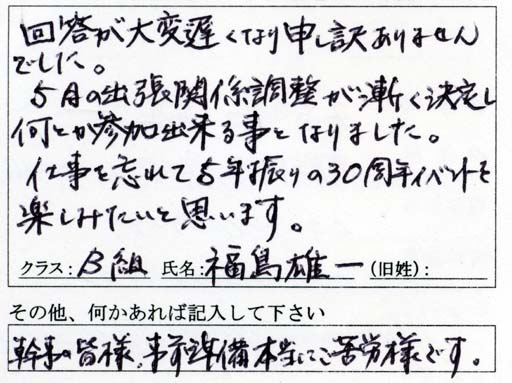 回答が大変遅くなり申し訳ありません
でした。
5月の出張関係調整が漸く決定し
何とか参加出来る事となりました。
仕事を忘れて5年振りの30周年イベントを
楽しみたいと思います。
クラス：B組 氏名：福島雄一 (旧姓)：
その他、何かあれば記入して下さい
幹事の皆様、事前準備本当にご苦労様です。